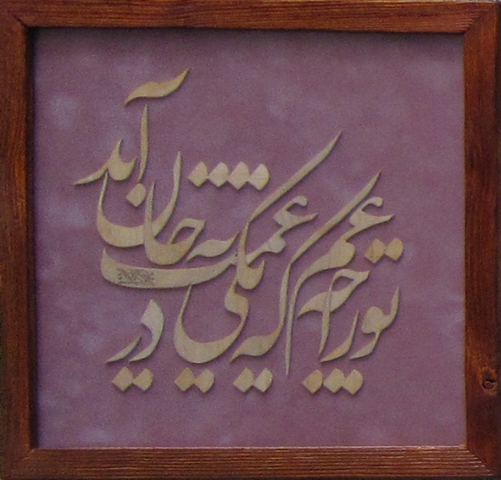 تو را چه غم که یکی در غمت به جان آید